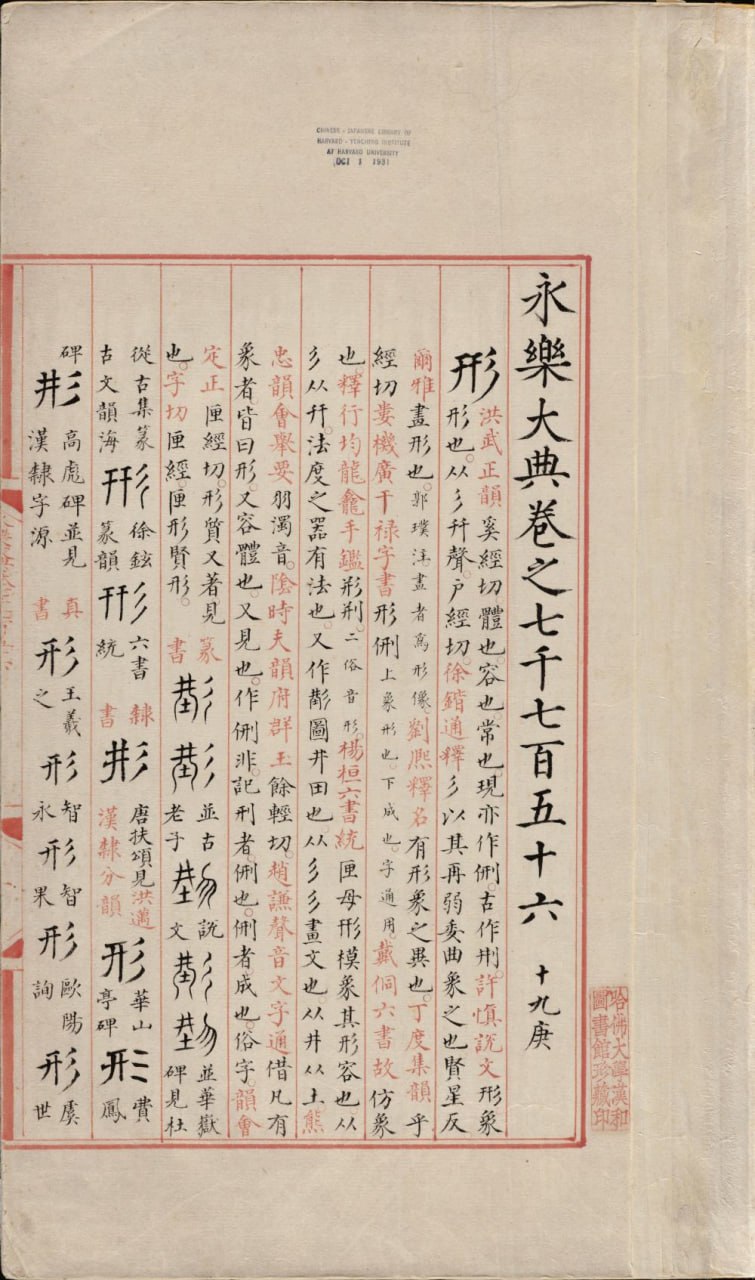 永樂大典卷之七千七百五十六 十九庚
形
洪武正韻奚經切體也容也常也現亦作侀古作㓝許慎說文形象
形也从彡幵聲戶經切徐鍇通釋彡以其再弱委曲象之也賢星反
爾雅畫形也郭璞註畫者爲形像劉熙釋名有形象之異也丁度集韻乎
經切婁機廣干祿字書形侀上象形也下成也字通用戴侗六書故仿象
也釋行均龍龕手鑑形㓝二俗音形楊桓六書統匣母形模象其形容也从
彡从幵法度之器有法也又作圖井田也从彡彡畫文也从井从土熊
忠韻會舉要羽濁音陰時夫韻府群玉餘輕切趙謙聲音文字通借凡有
象者皆曰形又容體也又見也作侀非記刑者侀也侀者成也俗字韻會
定正匣經切形質又著見
也字切匣經匣形賢形
篆書
並古老子
說文
並華嶽碑見杜從古集篆古文韻海
形徐鉉篆韻
形六書統
隸書
形唐扶頌見洪邁漢隸分韻
形華山亭碑
形費鳳碑
形高彪碑並見漢隸字源
真書
形王羲之
形智永
形智果
形歐陽詢
形虞世
CHINESE - JAPANESE LIBRARY OF
HARVARD - YENCHING INSTITUTE
AT HARVARD UNIVERSITY
OCT 1 1931
哈佛大學漢和
圖書館珍藏印